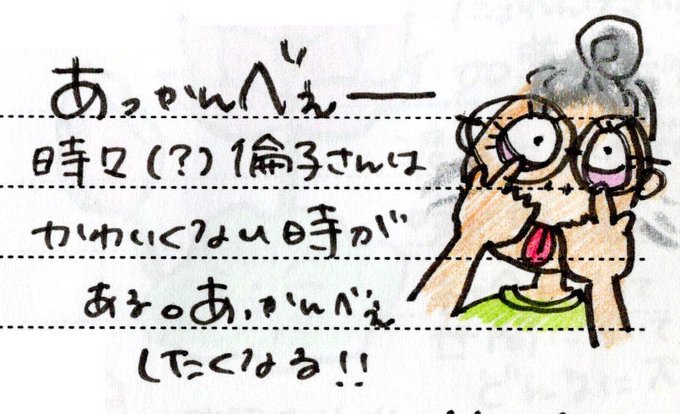 あっかんべぇー
時々(?)倫子さんは
かわいくない時が
ある。あっかんべぇ
したくなる!!